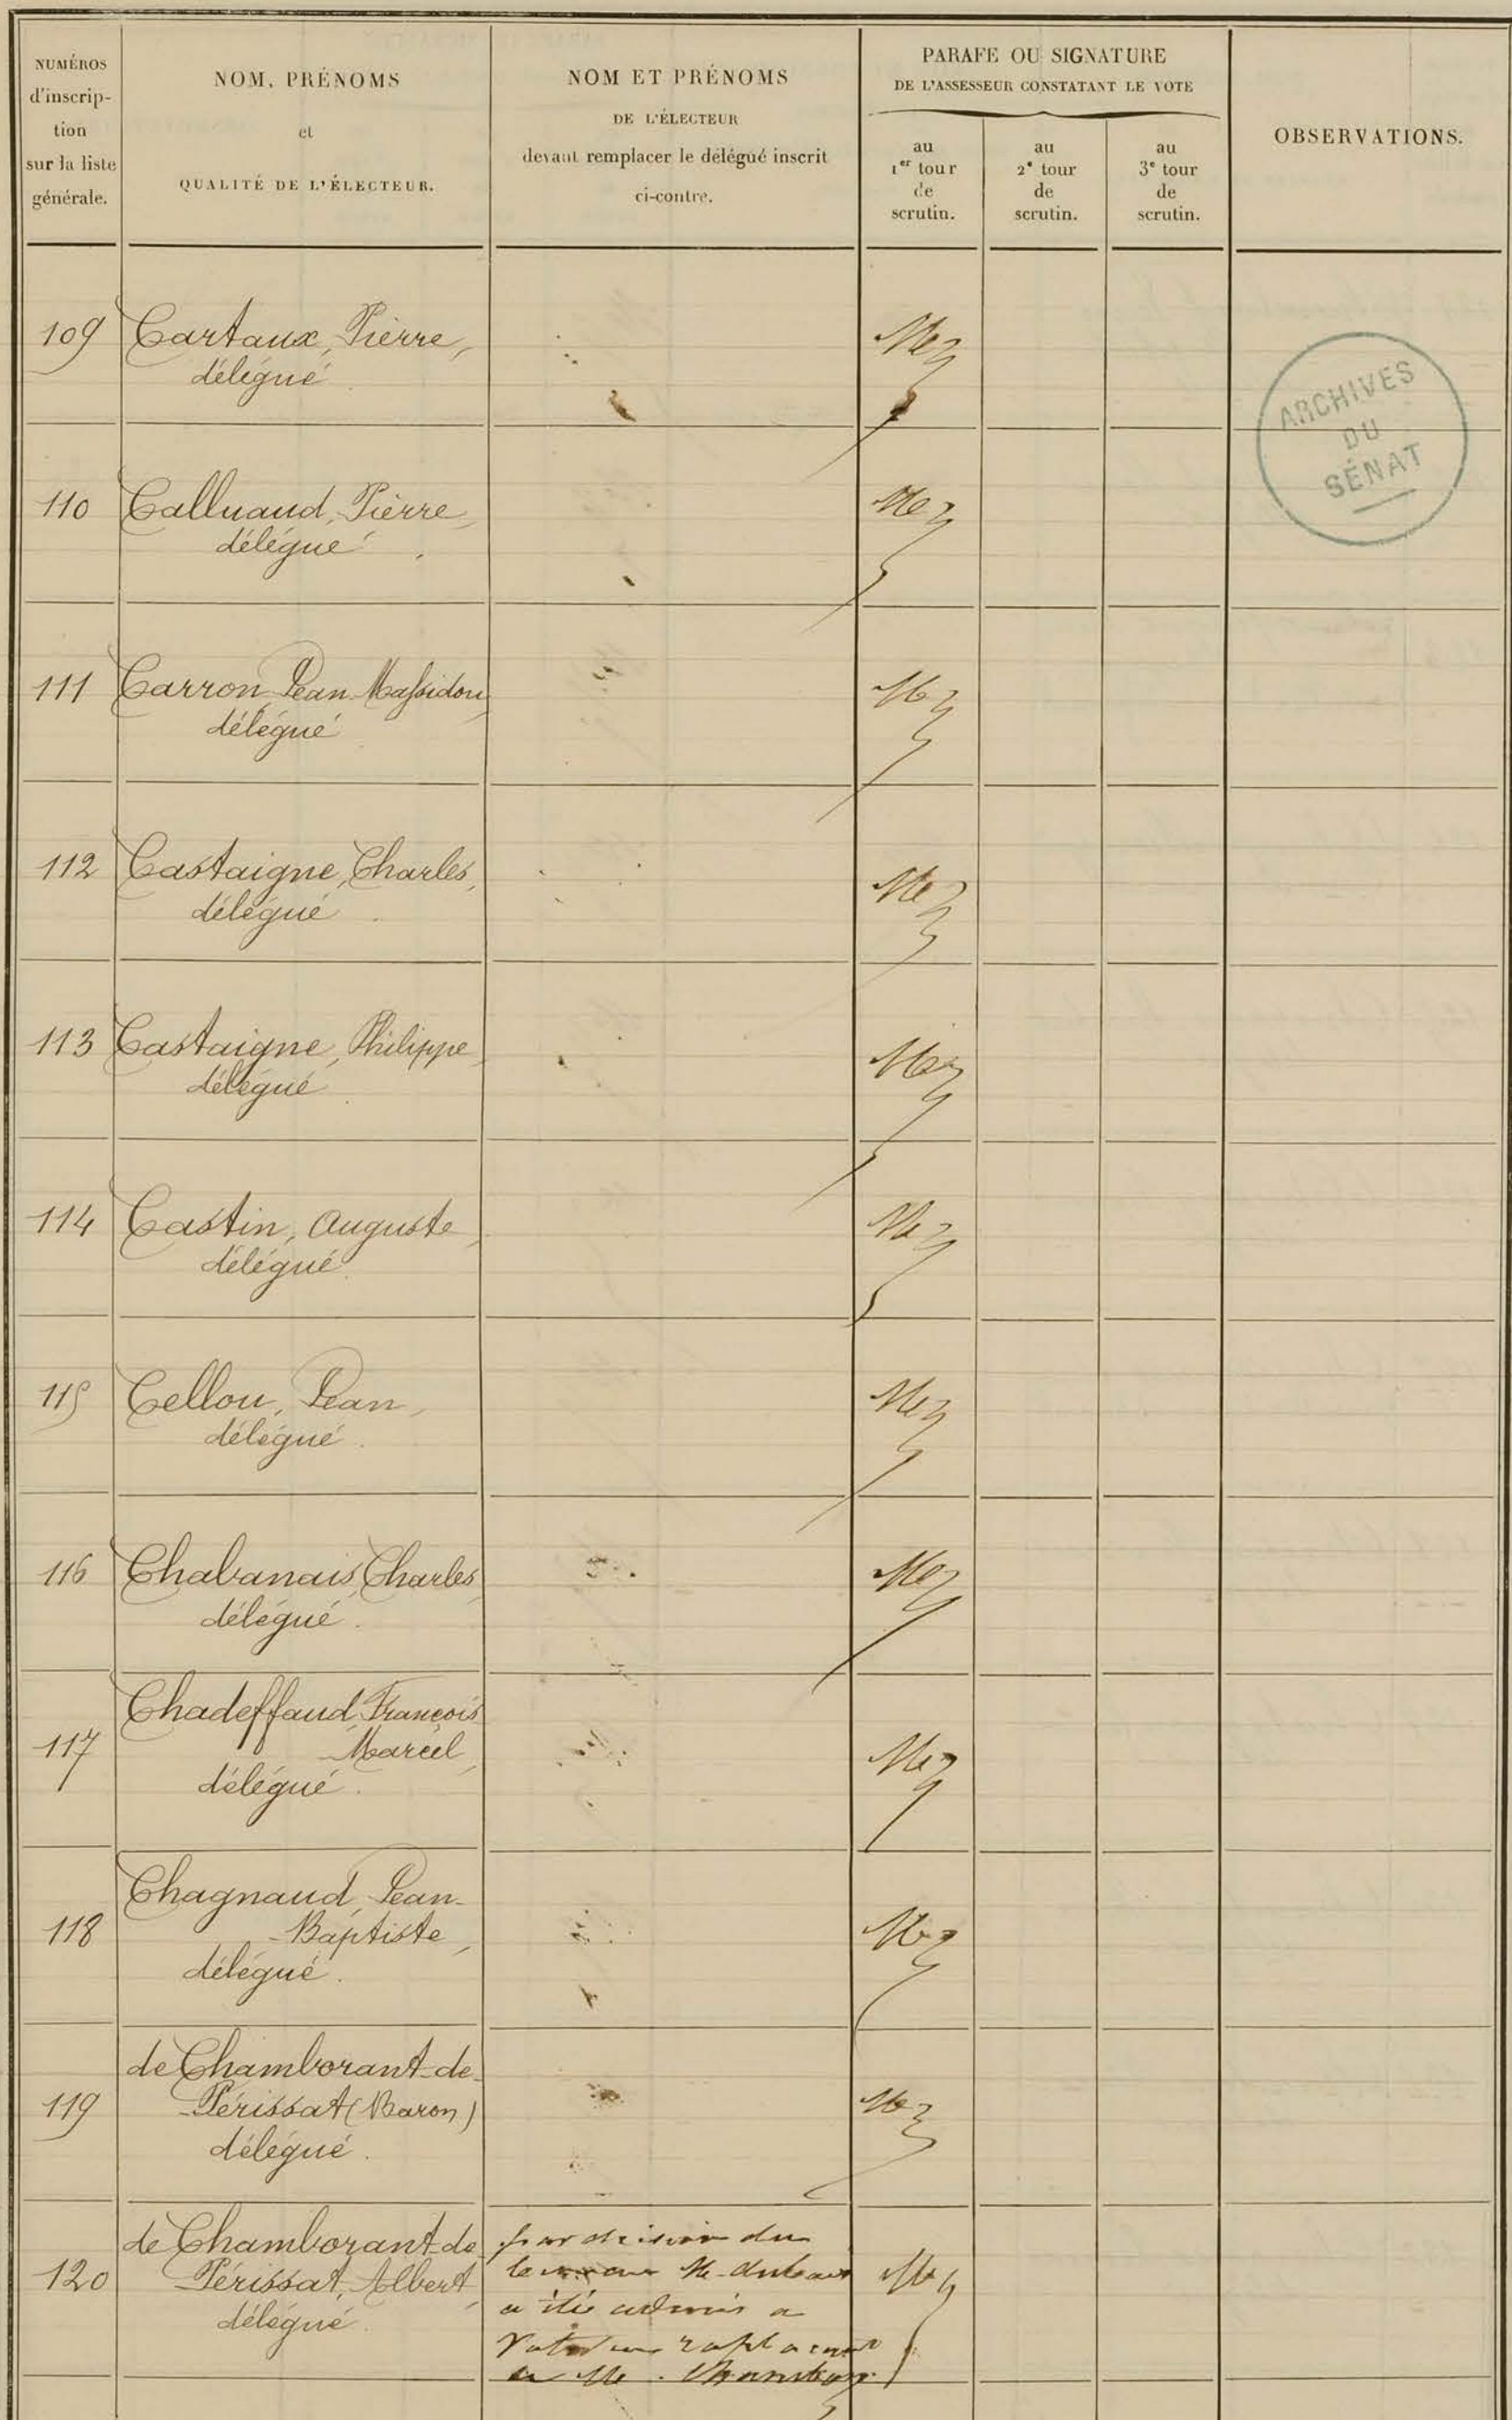 NUMÉROS
d'inscrip-
tion
sur la liste
générale.
NOM, PRÉNOMS
et
QUALITÉ DE L'ÉLECTEUR.
NOM ET PRÉNOMS
DE L'ÉLECTEUR
devant remplacer le délégué inscrit
ci-contre.
PARAFE OU SIGNATURE
DE L'ASSESSEUR CONSTATANT LE VOTE
au
1er tour
de
scrutin.
au
2e tour
de
scrutin.
au
3e tour
de
scrutin.
OBSERVATIONS.
109 Cartaux, Pierre,
délégué
ARCHIVES
DU
SÉNAT
110 Calluaud, Pierre,
délégué
111 Carron Jean Massidou,
délégué
112 Castaigne, Charles,
délégué
113 Castaigne, Philippe,
délégué
114 Castin, Auguste,
délégué
115 Cellou, Jean,
délégué
116 Chabanais, Charles,
délégué
117 Chadeffaud François
Marcel,
délégué
118 Chagnaud, Jean-
Baptiste,
délégué
119 de Chamborant-de-
Périssat (Baron)
délégué
120 de Chamborant-de
Périssat, Albert,
délégué
par décision du
a été admis a